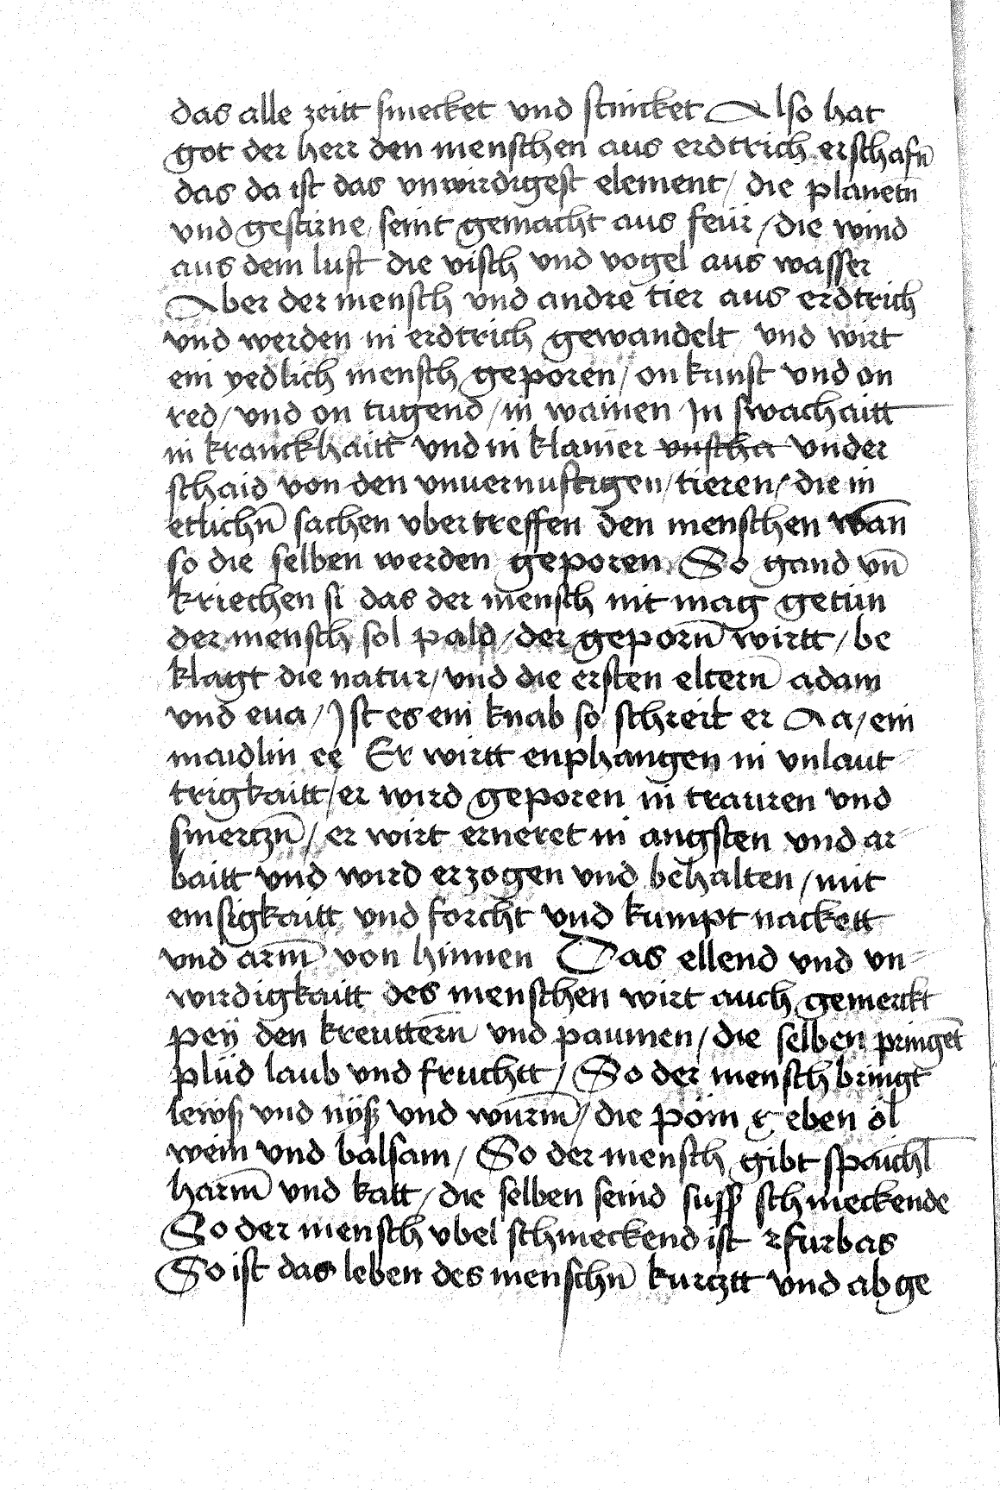 das alle zeitt smecket vnd stincket Also hat
got der herr den menschen aus erdtrich erschafn̄
das da ist das vnwirdigest element / die planetn̄
vnd gestirne / seint gemacht aus feür / die wind
aus dem luft die visch vnd vogel aus wasser
Aber der mensch vnd andre tier aus erdtrich
vnd werden in erdtrich gewandelt vnd wirt
ein yedlich mensch geporen / on kunst vnd on
red / vnd on tugend / in wainen In swachaitt
in kranckhaitt vnd in klainer vnscha vnder
schaid von den vnuernuftigen / tieren / die in
etlichn̄ sachen vbertreffen den menschen wān
so die selben werden geporen. So gand vn̄
kriechen si das der mensch nit mag getün
der mensch sol pald / der geporn̄ wirtt / be
klagt die natur / vnd die ersten eltern̄ adam
vnd eua / Ist es ein knab so schreit er Aa / ein
maidlin ee Er wirtt enphangen in vnlaut
trigkaitt / er wird geporen in trauren vnd
smerczn̄ / er wirt erneret in angsten vnd ar
baitt vnd wird erzogen vnd behalten / mit
emsigkaitt vnd forcht vnd kumpt nackett
vnd arm̄ von hinnen Das ellend vnd vn
wirdigkaitt des menschen wirt auch gemerckt
pey̎ den kreuttern̄ vnd paumen / die selben pringet̄
plüd laub vnd fruchtt / So der mensch bringt
lewß vnd nÿß vnd wurm̄ / die pöm geben öl
wein vnd balsam / So der mensch gibt spaichl
harm̄ vnd katt / die selben seind suss schmeckende
So der mensch vbel schmeckend ist furbas
So ist das leben des menschn̄ kurcztt vnd abge